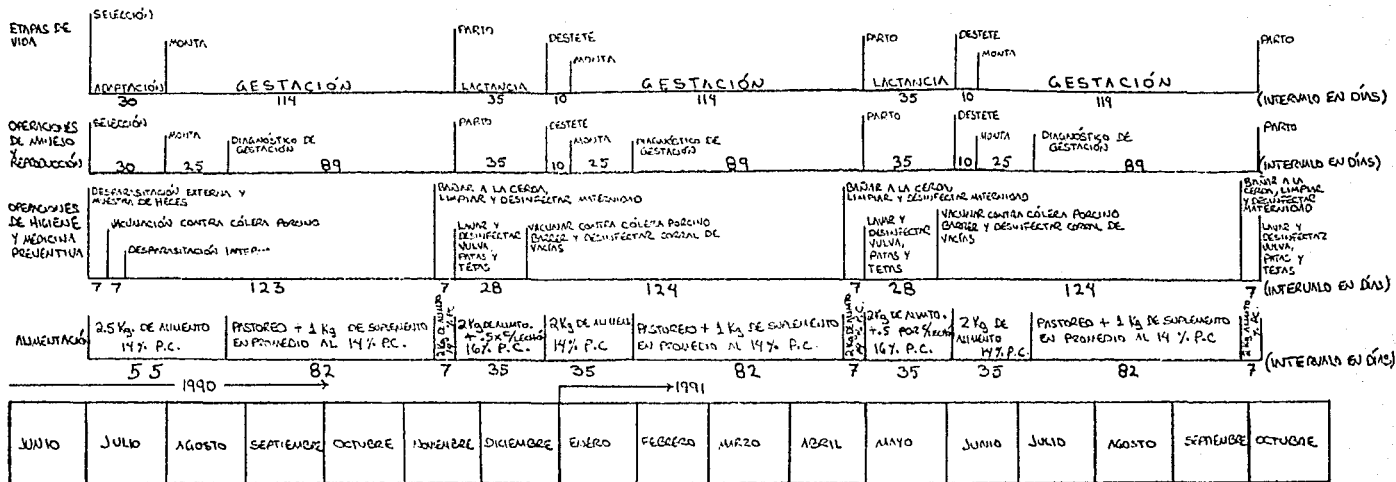 ETAPAS DE
VIDA
SELECCIÓN
MONTA
PARTO
DESTETE
MONTA
PARTO
DESTETE
MONTA
PARTO
ADAPTACIÓN
GESTACIÓN
LACTANCIA
GESTACIÓN
LACTANCIA
GESTACIÓN
30
114
35
10
114
35
10
114
(INTERVALO EN DÍAS)
OPERACIONES
DE MANEJO
Y
REPRODUCCIÓN
SELECCIÓN
MONTA
DIAGNÓSTICO DE
GESTACIÓN
PARTO
DESTETE
MONTA
DIAGNÓSTICO DE
GESTACIÓN
PARTO
DESTETE
MONTA
DIAGNÓSTICO DE
GESTACIÓN
PARTO
30
25
89
35
10
25
89
35
10
25
89
(INTERVALO EN DÍAS)
OPERACIONES
DE HIGIENE
Y MEDICINA
PREVENTIVA
DESPARASITACIÓN EXTERNA Y
MUESTRA DE HECES
VACUNACIÓN CONTRA CÓLERA PORCINO
DESPARASITACIÓN
BAÑAR A LA CERDA,
LIMPIAR Y DESINFECTAR MATERNIDAD
LAVAR Y
DESINFECTAR
VULVA,
PATAS Y
TETAS
VACUNAR CONTRA CÓLERA PORCINO
BARRER Y DESINFECTAR CORRAL DE
VACÍAS
BAÑAR A LA CERDA,
LIMPIAR Y DESINFECTAR MATERNIDAD
LAVAR Y
DESINFECTAR
VULVA,
PATAS Y
TETAS
VACUNAR CONTRA CÓLERA PORCINO
BARRER Y DESINFECTAR CORRAL DE
VACÍAS
BAÑAR A LA
CERDA, LIMPIAR
Y DESINFECTAR
MATERNIDAD
LAVAR Y
DESINFECTAR
VULVA,
PATAS Y
TETAS
7 7
123
7
28
124
7
28
124
7
(INTERVALO EN DÍAS)
ALIMENTACIÓN
2.5 Kg. DE ALIMENTO
14% P.C.
PASTOREO + 1 Kg DE SUPLEMENTO
EN PROMEDIO AL 14% P.C.
2 Kg DE ALIMTO.
2 Kg DE ALIMTO.
+ .5 x c/LECHÓN
16% P.C.
2 Kg DE ALIMEN
14% P.C.
PASTOREO + 1 Kg DE SUPLEMENTO
EN PROMEDIO AL 14 % P.C
2 Kg DE ALIMTO.
2 Kg DE ALIMTO.
+ .5 POR c/LECHÓN
16% P.C.
2 Kg DE
ALIMENTO
14% P.C.
PASTOREO + 1 Kg DE SUPLEMENTO
EN PROMEDIO AL 14 % P.C
2 Kg ALIMTO
55
82
7
35
35
82
7
35
35
82
7
(INTERVALO EN DÍAS)
1990
1991
JUNIO
JULIO
AGOSTO
SEPTIEMBRE
OCTUBRE
NOVIEMBRE
DICIEMBRE
ENERO
FEBRERO
MARZO
ABRIL
MAYO
JUNIO
JULIO
AGOSTO
SEPTIEMBRE
OCTUBRE